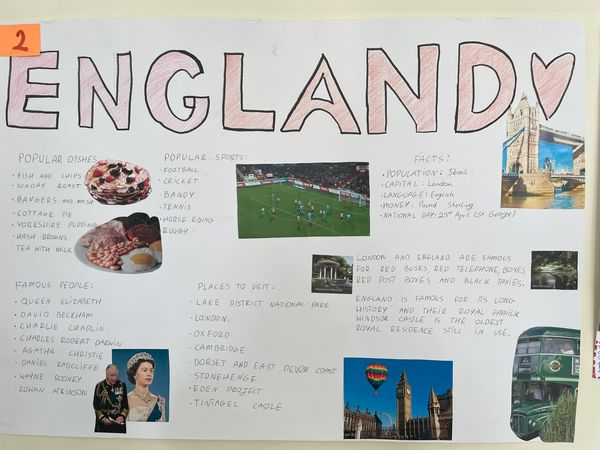 2
ENGLAND
POPULAR DISHES:
• FISH AND CHIPS
• SUNDAY ROAST
• BANGERS AND MASH
• COTTAGE PIE
• YORKSHIRE PUDDING
• HASH BROWNS
• TEA WITH MILK
POPULAR SPORTS:
• FOOTBALL
• CRICKET
• BANDY
• TENNIS
• HORSE RIDING
• RUGBY
FACTS:
• POPULATION: 56mil.
• CAPITAL: London
• LANGUAGE: English
• MONEY: Pound Sterling
• NATIONAL DAY: 23rd April (St George)
LONDON AND ENGLAND ARE FAMOUS
FOR RED BUSES, RED TELEPHONE BOXES,
RED POST BOXES AND BLACK TAXIES.
ENGLAND IS FAMOUS FOR ITS LONG
HISTORY AND THEIR ROYAL FAMILY.
WINDSOR CASTLE IS THE OLDEST
ROYAL RESIDENCE STILL IN USE.
FAMOUS PEOPLE:
• QUEEN ELIZABETH
• DAVID BECKHAM
• CHARLIE CHAPLIN
• CHARLES ROBERT DARWIN
• AGATHA CHRISTIE
• DANIEL RADCLIFFE
• WAYNE ROONEY
• ROHAN ATKINSON
PLACES TO VISIT:
• LAKE DISTRICT NATIONAL PARK
• LONDON
• OXFORD
• CAMBRIDGE
• DORSET AND EAST DEVON COAST
• STONEHENGE
• EDEN PROJECT
• TINTAGEL CASTLE